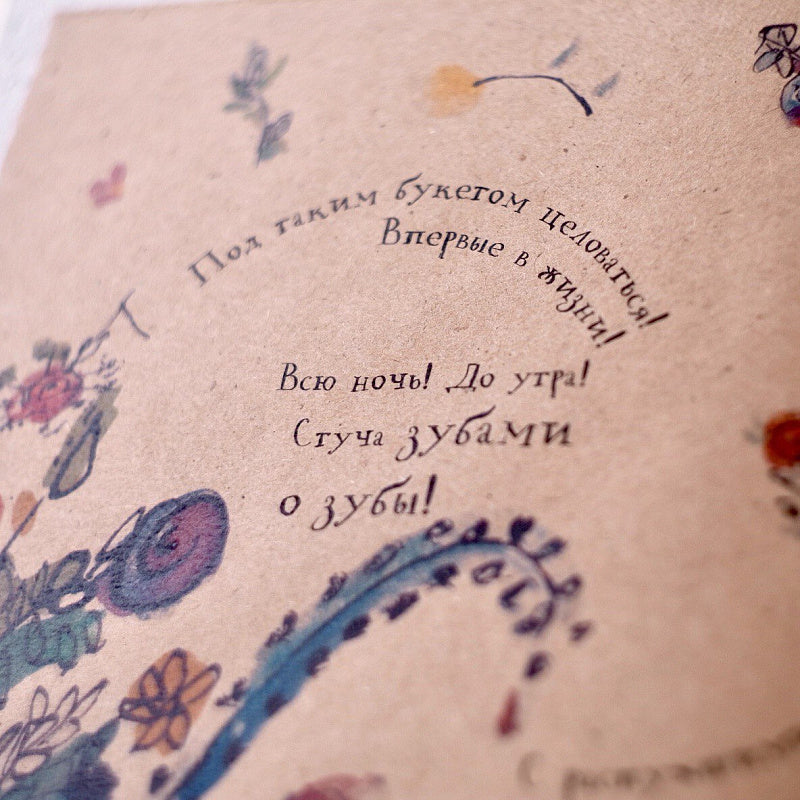 Под таким букетом целоваться!
Впервые в жизни!
Всю ночь! До утра!
Стуча зубами
о зубы!